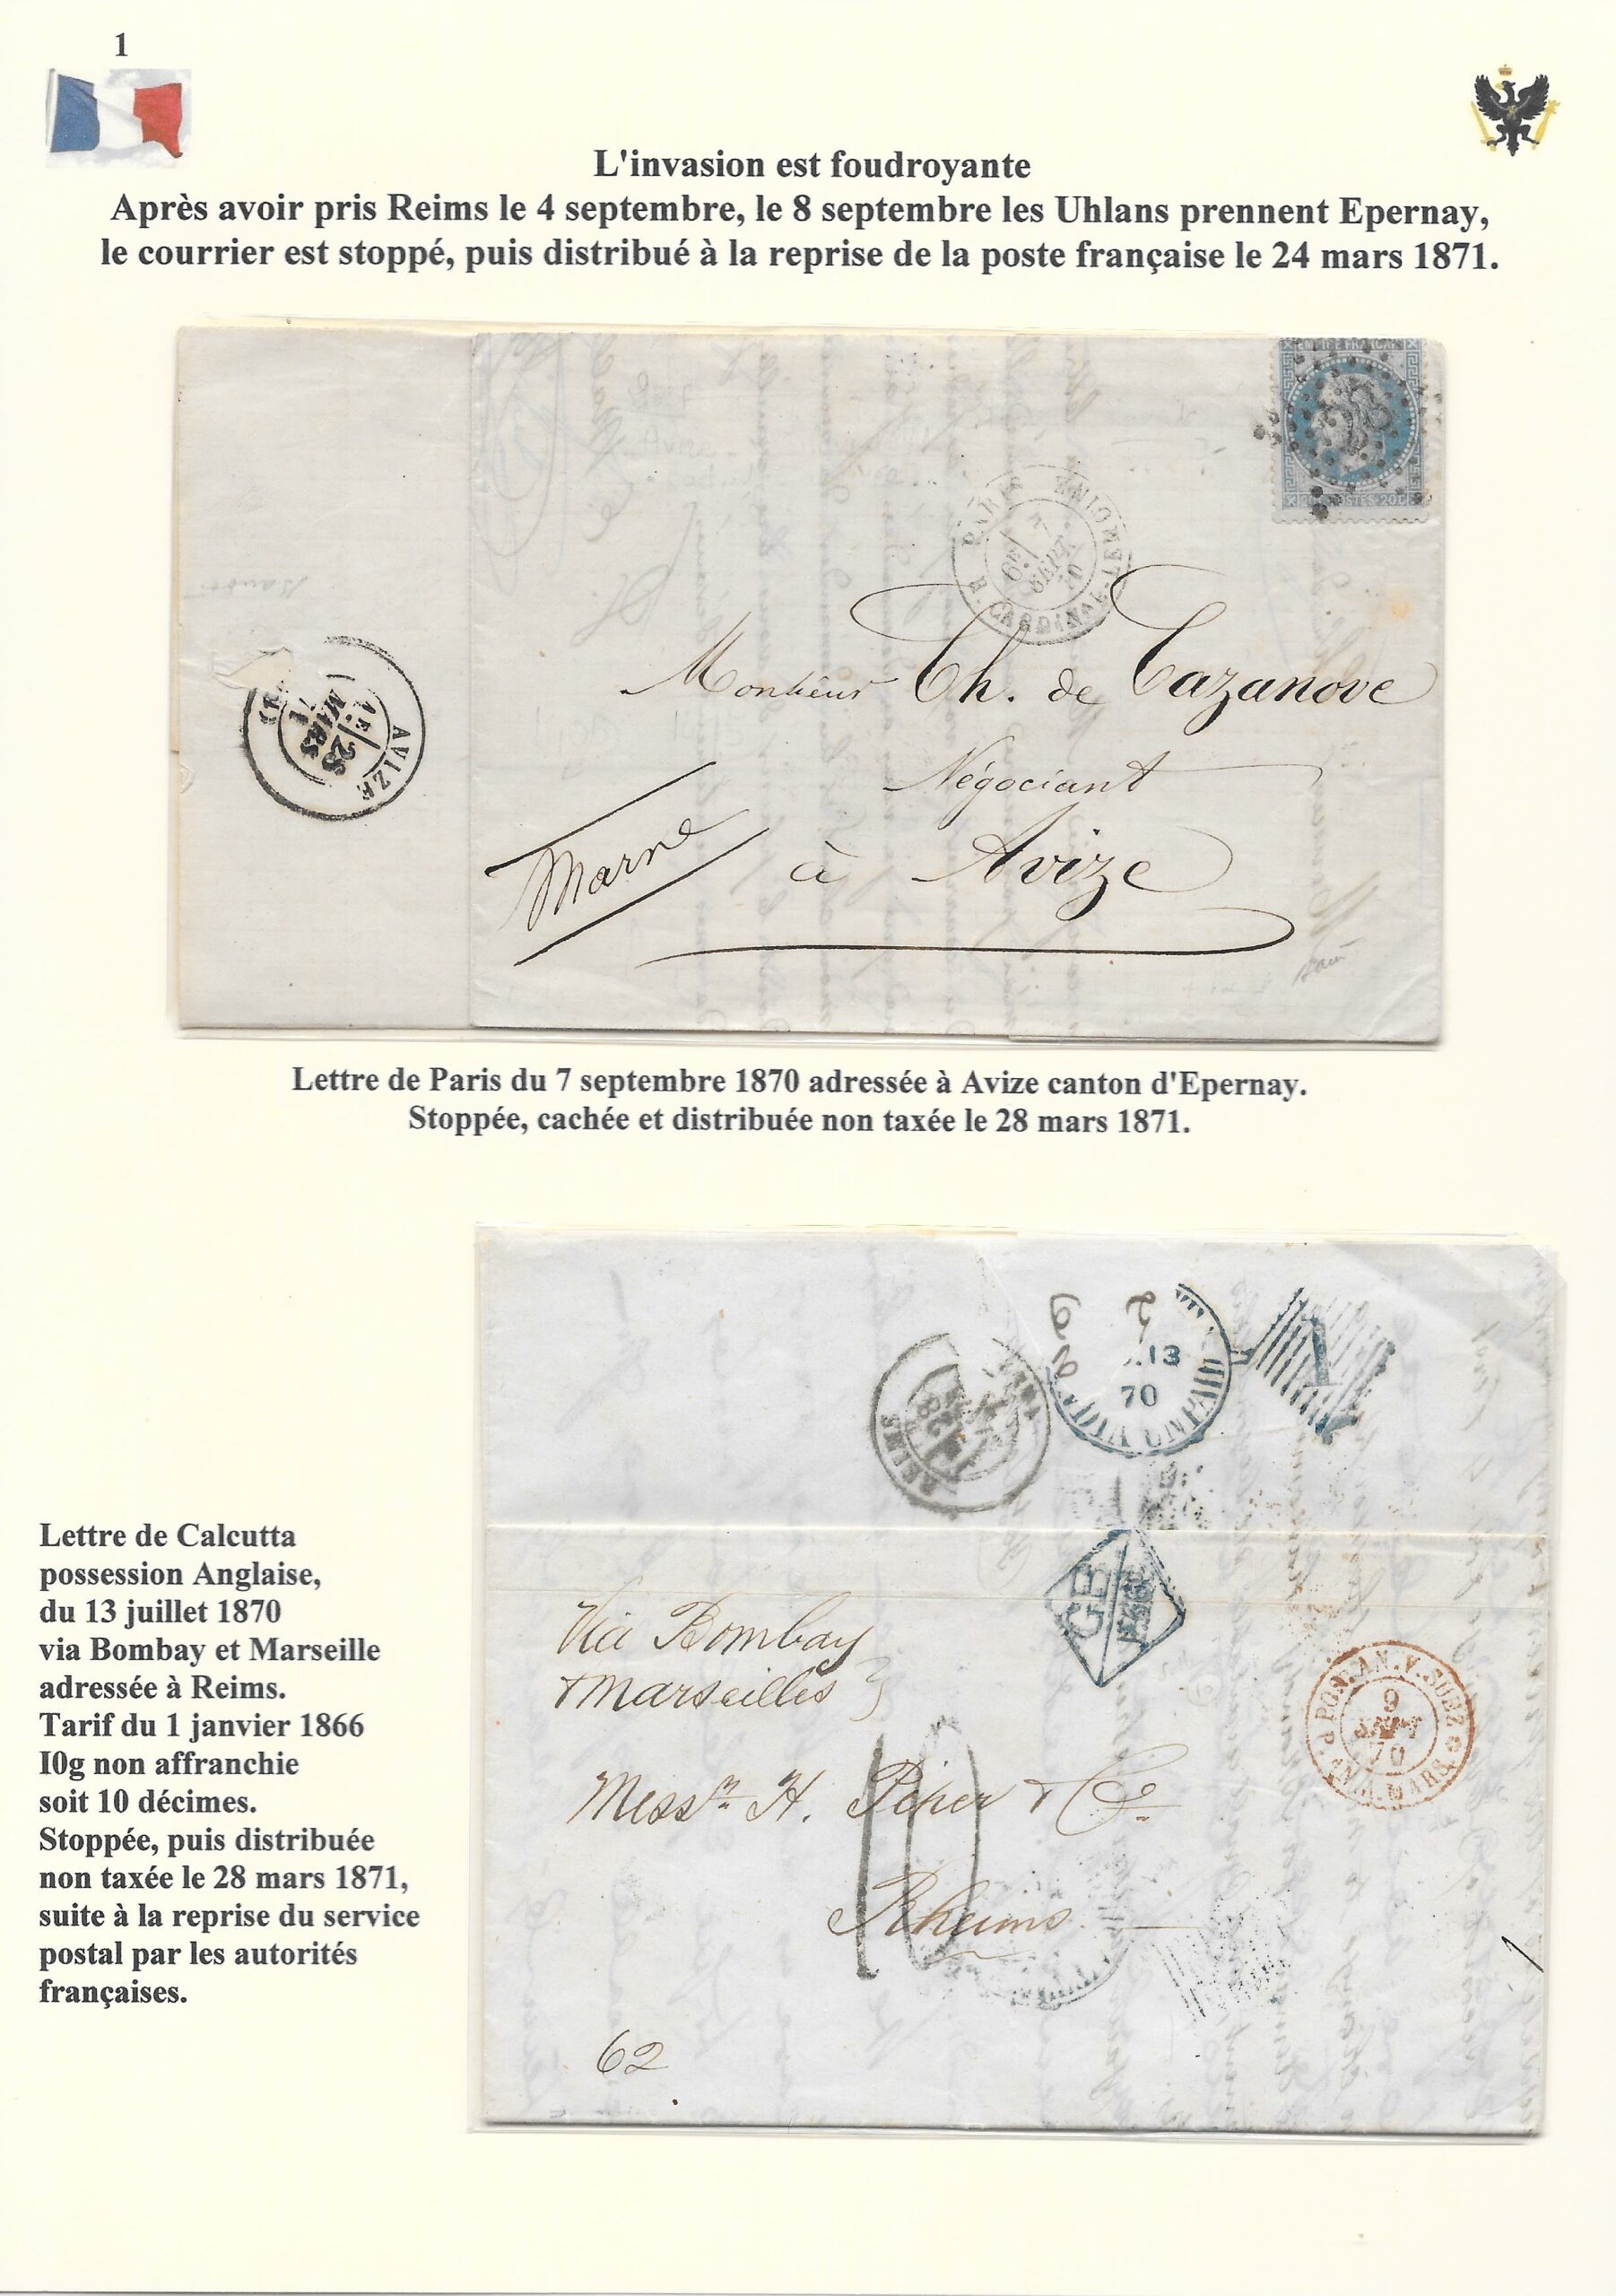 1
L'invasion est foudroyante
Après avoir pris Reims le 4 septembre, le 8 septembre les Uhlans prennent Epernay,
le courrier est stoppé, puis distribué à la reprise de la poste française le 24 mars 1871.
EMPIRE FRANÇAIS
28
POSTES 20
PARIS
R. CARDINAL-LEMOINE
6E/
7
SEPT
70
AVIZE
28
MARS
71
Monsieur Ch. de Cazanove
Négociant
à Avize
Marne
Lettre de Paris du 7 septembre 1870 adressée à Avize canton d'Epernay.
Stoppée, cachée et distribuée non taxée le 28 mars 1871.
13
70
INDIA UNPAID
1
REIMS
28
GB
1F 66c
Via Bombay
& Marseilles
POSS. AN. V. SUEZ
9
AOUT
70
A MARS.
Messrs H. Piper & Co
10
Rheims
62
Lettre de Calcutta
possession Anglaise,
du 13 juillet 1870
via Bombay et Marseille
adressée à Reims.
Tarif du 1 janvier 1866
I0g non affranchie
soit 10 décimes.
Stoppée, puis distribuée
non taxée le 28 mars 1871,
suite à la reprise du service
postal par les autorités
françaises.